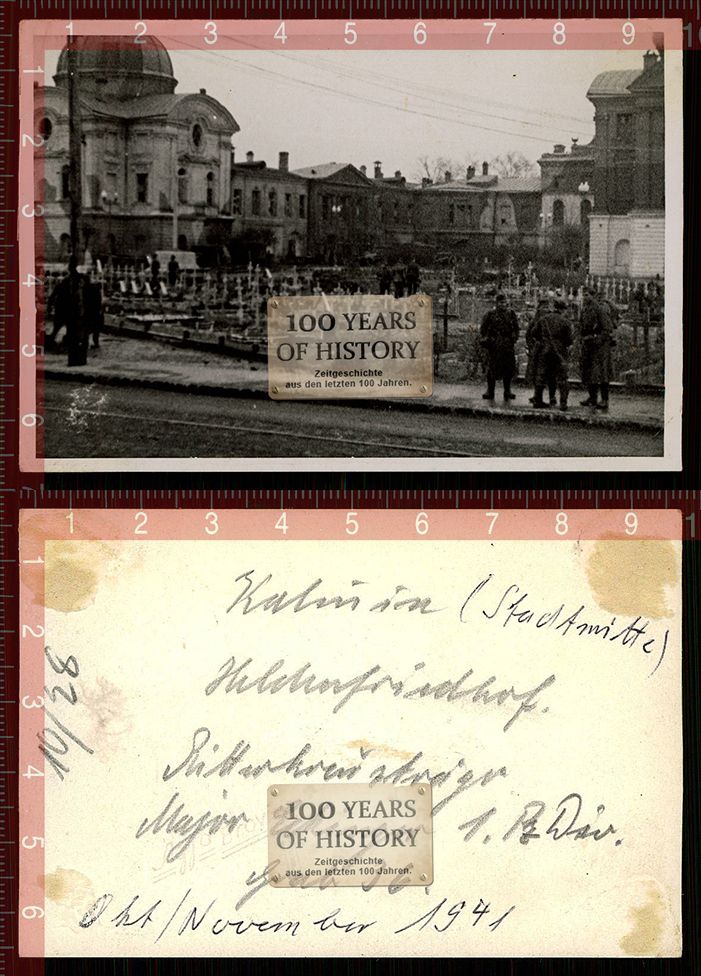 1 2 3 4 5 6 7 8 9 10
1
2
3
4
5
6
100 YEARS
OF HISTORY
Zeitgeschichte
aus den letzten 100 Jahren.
1 2 3 4 5 6 7 8 9 1
1
2
3
4
5
6
Kalinin (Stadtmitte)
Heldenfriedhof.
10/28
Ritterkreuzträger
Major 1. Pz Div.
100 YEARS
OF HISTORY
Zeitgeschichte
aus den letzten 100 Jahren.
Grab 16.
Okt/November 1941